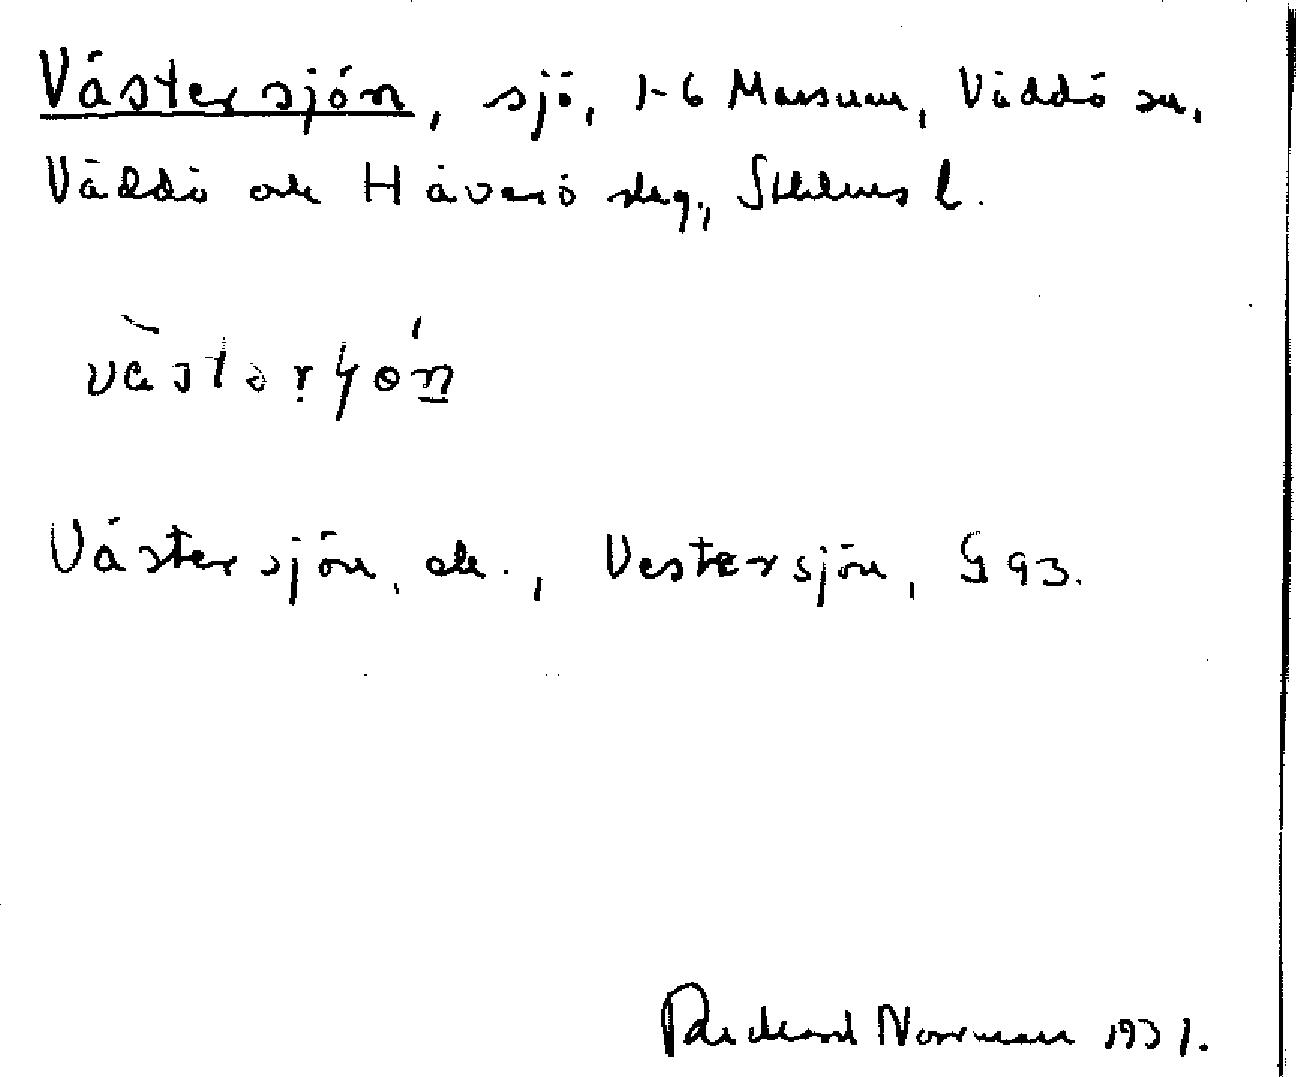 Västersjön, sjö, 1-6 Massum, Väddö sn,
Väddö och Häverö skg., Sthlms l.
Västersjön, ek., Vestersjön, G 93.
Rickard Norrman 1931.